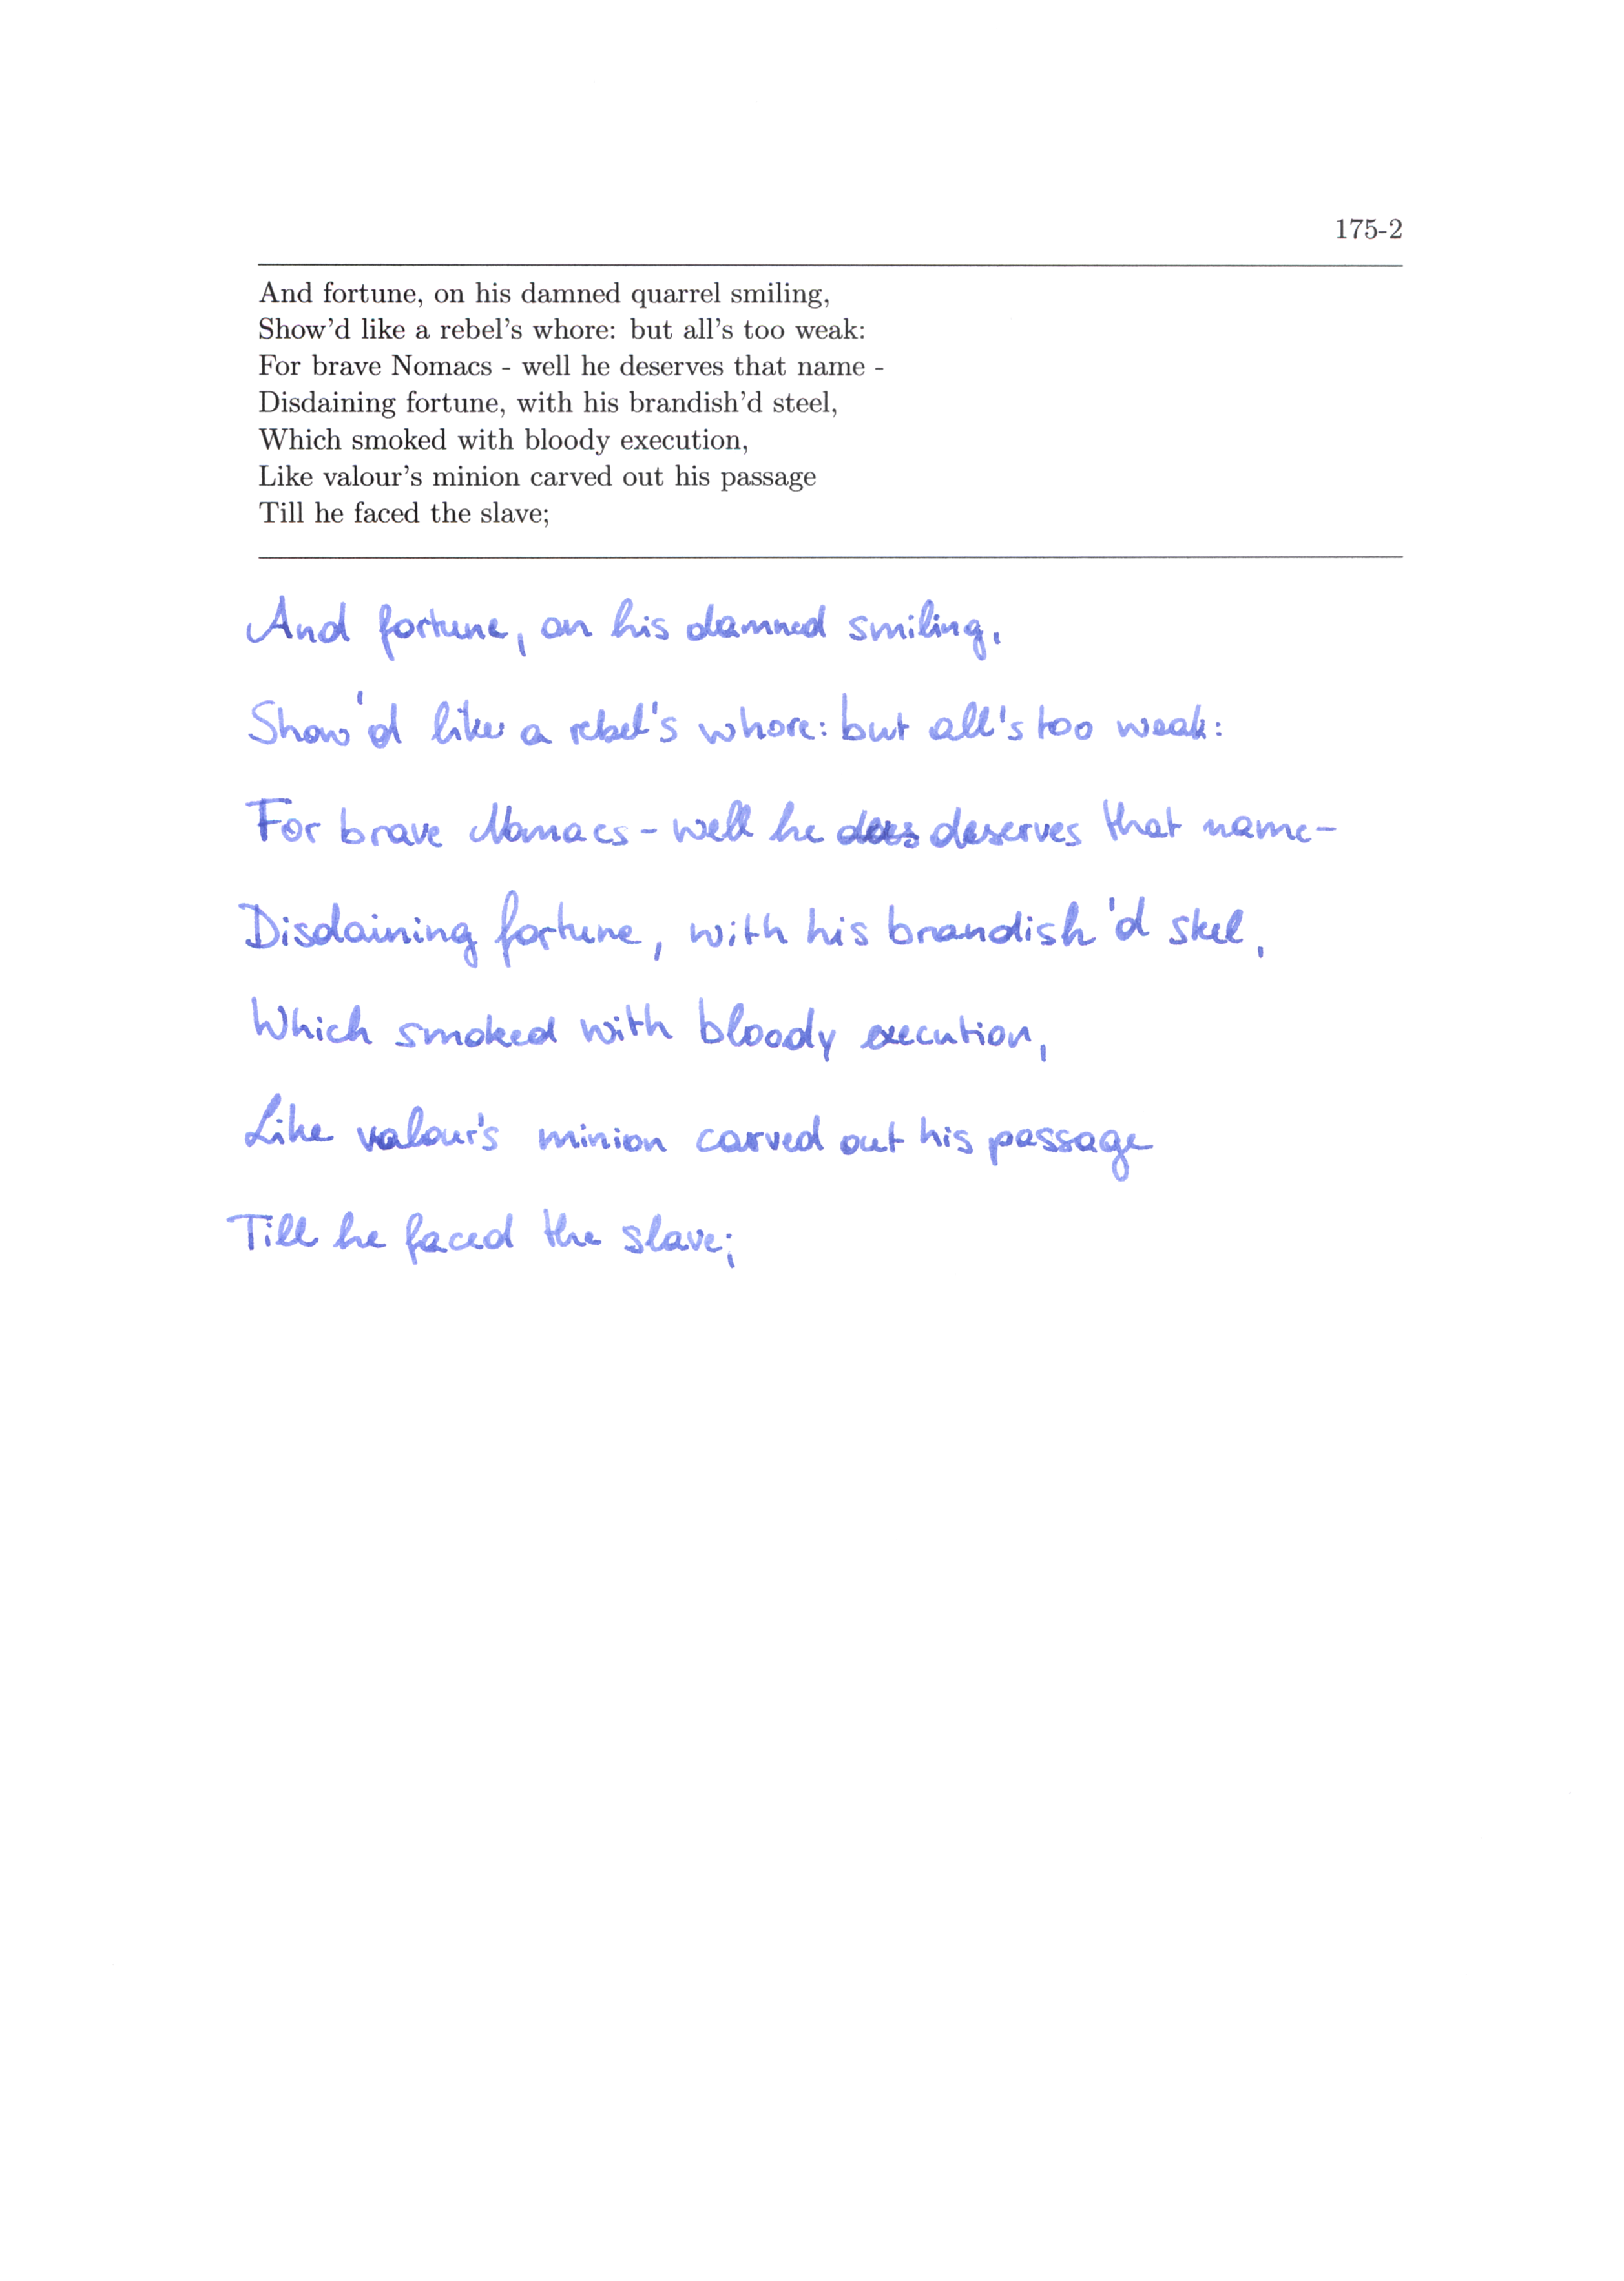 175-2
And fortune, on his damned quarrel smiling,
Show'd like a rebel's whore: but all's too weak:
For brave Nomacs - well he deserves that name -
Disdaining fortune, with his brandish'd steel,
Which smoked with bloody execution,
Like valour's minion carved out his passage
Till he faced the slave;
And fortune, on his damned smiling,
Show'd like a rebel's whore: but all's too weak:
For brave Nomacs - well he deserves that name -
Disdaining fortune, with his brandish'd steel,
Which smoked with bloody execution,
Like valour's minion carved out his passage
Till he faced the slave;